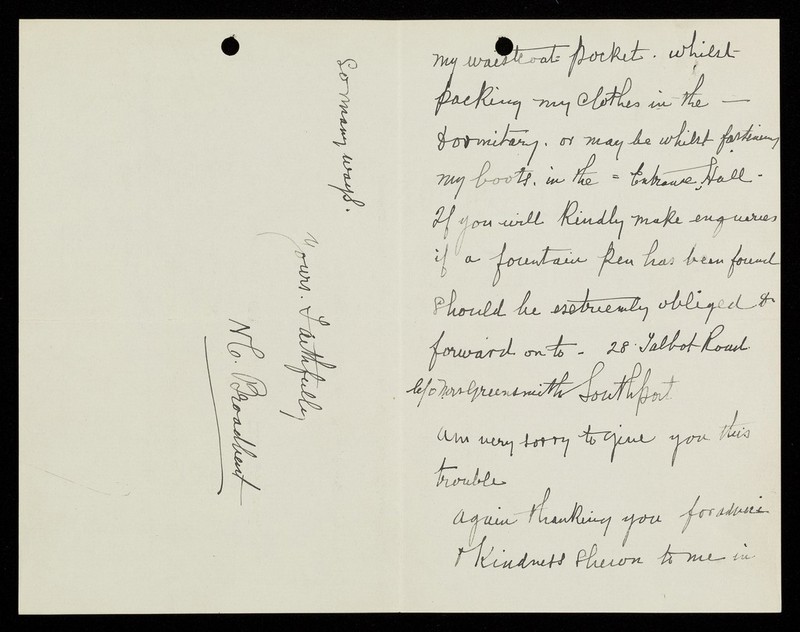 my waistcoat pocket. whilst
packing my clothes in the —
dormitary. or may be whilst fastening
my boots. in the = Entrance Hall -
If you will kindly make enquaries
if a fountain pen has been found
should be exetreemly obliged &
forward on to - 28 Talbot Road
c/o Mrs Greensmith Southport
am very sorry to give you this
trouble
again thanking you for advice
& Kindness shewn to me in
So many ways.
Yours. Faithfully
Broadbent